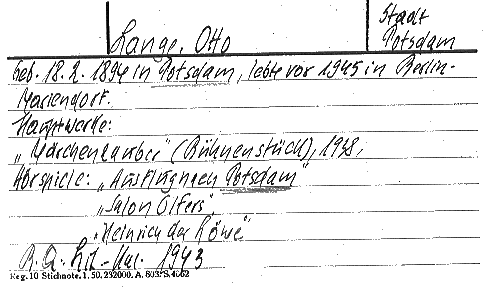 Stadt
Lange, Otto
Potsdam
Geb. 18.2.1894 in Potsdam, lebte vor 1945 in Berlin-
Mariendorf.
Hauptwerke:
„Märchenzauber" (Bühnenstück), 1938,
Hörspiele: „Ausflug nach Potsdam"
„Salon Olfers",
„Heinrich der Löwe"
Lit.-Kal. 1943
Reg. 10 Stichnote. 1. 50. 232000. A. 803. S. 4062